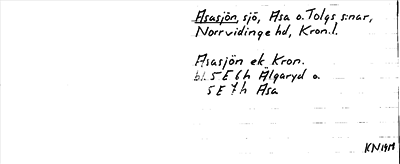 Asasjön, sjö, Asa o. Tolgs s:nar,
Norrvidinge hd, Kron. l.
Asasjön ek. Kron.
bl. 5E6h Älgaryd o.
5E7h Asa